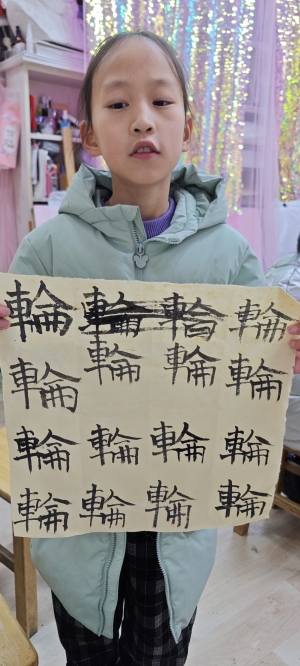 輪 輪 輪
輪 輪 輪 輪
輪 輪 輪 輪
輪 輪 輪 輪